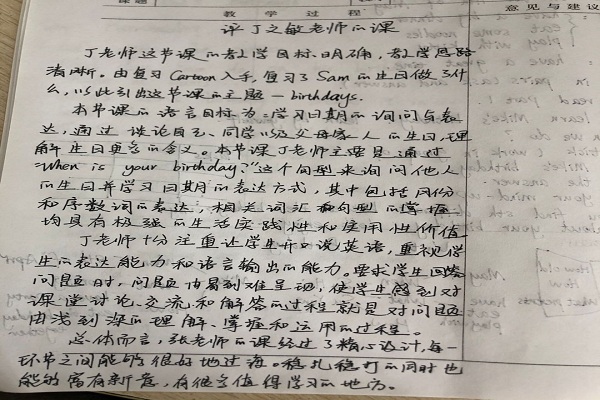 课题
教学过程
意见与建议
评丁之敏老师的课
丁老师这节课的教学目标明确，教学思路
清晰。由复习Cartoon入手，复习了Sam的生日做了什
么，以此引出这节课的主题－birthdays.
本节课的语言目标为：学习日期的询问与表
达，通过谈论自己、同学以及父母家人的生日，理
解生日更多的含义。本节课丁老师主要是通过
"When is your birthday?"这个句型来询问他人
的生日并学习日期的表达方式，其中包括月份
和序数词的表达；相关词汇和句型的掌握
均具有极强的生活实践性和实用性价值
丁老师十分注重让学生开口说英语，重视学
生的表达能力和语言输出的能力。要求学生回答
问题时，问题由易到难呈现，使学生感到对
课堂讨论、交流和解答的过程就是对问题
由浅到深的理解、掌握和运用的过程。
总体而言，张老师的课经过了精心设计，每一
环节之间能够很好地过渡。稳扎稳打的同时也
能够富有新意，有很多值得学习的地方。